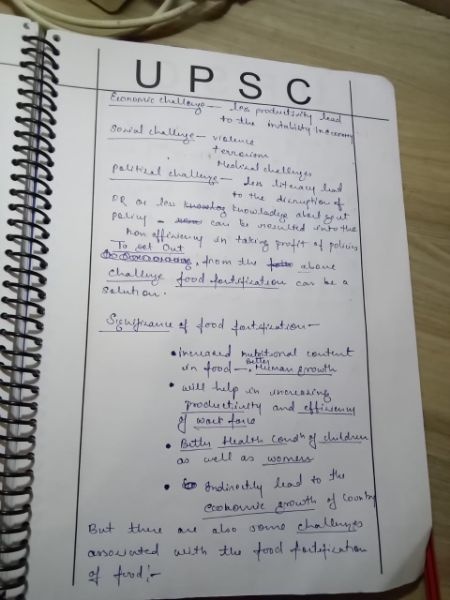 UPSC
Economic challenge — less productivity lead
to the instability in economy
Social challenge — violence
terrorism
Medical challenges
political challenge — less literacy lead
to the disruption of
OR or less knowledge about govt
policy — can be resulted into the
non efficiency in taking profit of policies
To get out
from the above
challenge food fortification can be a
solution.
Significance of food fortification —
• increased nutritional content
in food — Better Human growth
• will help in increasing
productivity and efficiency
of work force
• Better Health condn of children
as well as women
• Indirectly lead to the
economic growth of country
But there are also some challenges
associated with the food fortification
of food :-